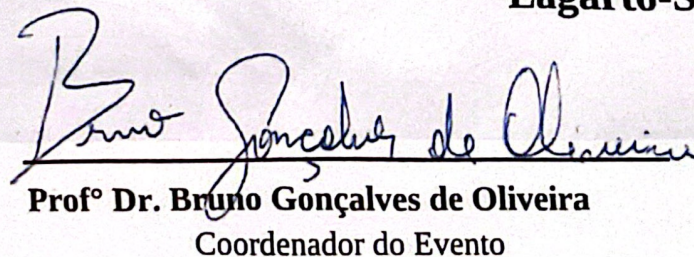 Lagarto-S
Bruno Gonçalves de Oliveira
Prof° Dr. Bruno Gonçalves de Oliveira
Coordenador do Evento